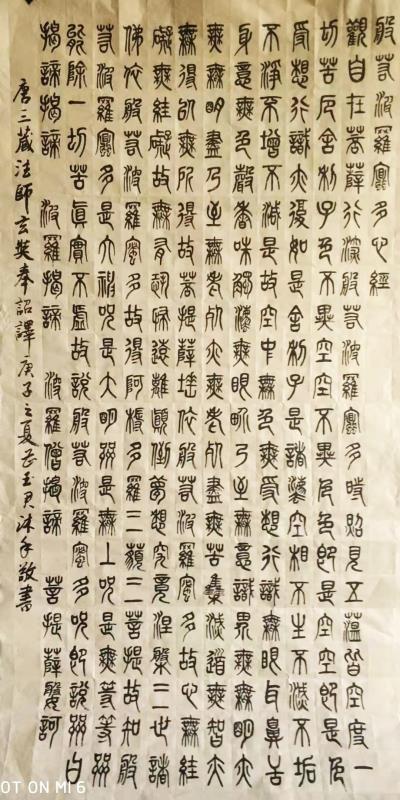 般若波羅蜜多心經
觀自在菩薩行深般若波羅蜜多時照見五蘊皆空度一
切苦厄舍利子色不異空空不異色色即是空空即是色
受想行識亦復如是舍利子是諸法空相不生不滅不垢
不淨不增不減是故空中無色無受想行識無眼耳鼻舌
身意無色聲香味觸法無眼界乃至無意識界無無明亦
無無明盡乃至無老死亦無老死盡無苦集滅道無智亦
無得以無所得故菩提薩埵依般若波羅蜜多故心無罣
礙無罣礙故無有恐怖遠離顛倒夢想究竟涅槃三世諸
佛依般若波羅蜜多故得阿耨多羅三藐三菩提故知般
若波羅蜜多是大神咒是大明咒是無上咒是無等等咒
能除一切苦真實不虛故說般若波羅蜜多咒即說咒曰
揭諦揭諦 波羅揭諦 波羅僧揭諦 菩提薩婆訶
唐三藏法師玄奘奉詔譯 庚子之夏玉君沐手敬書
OT ON MI 6